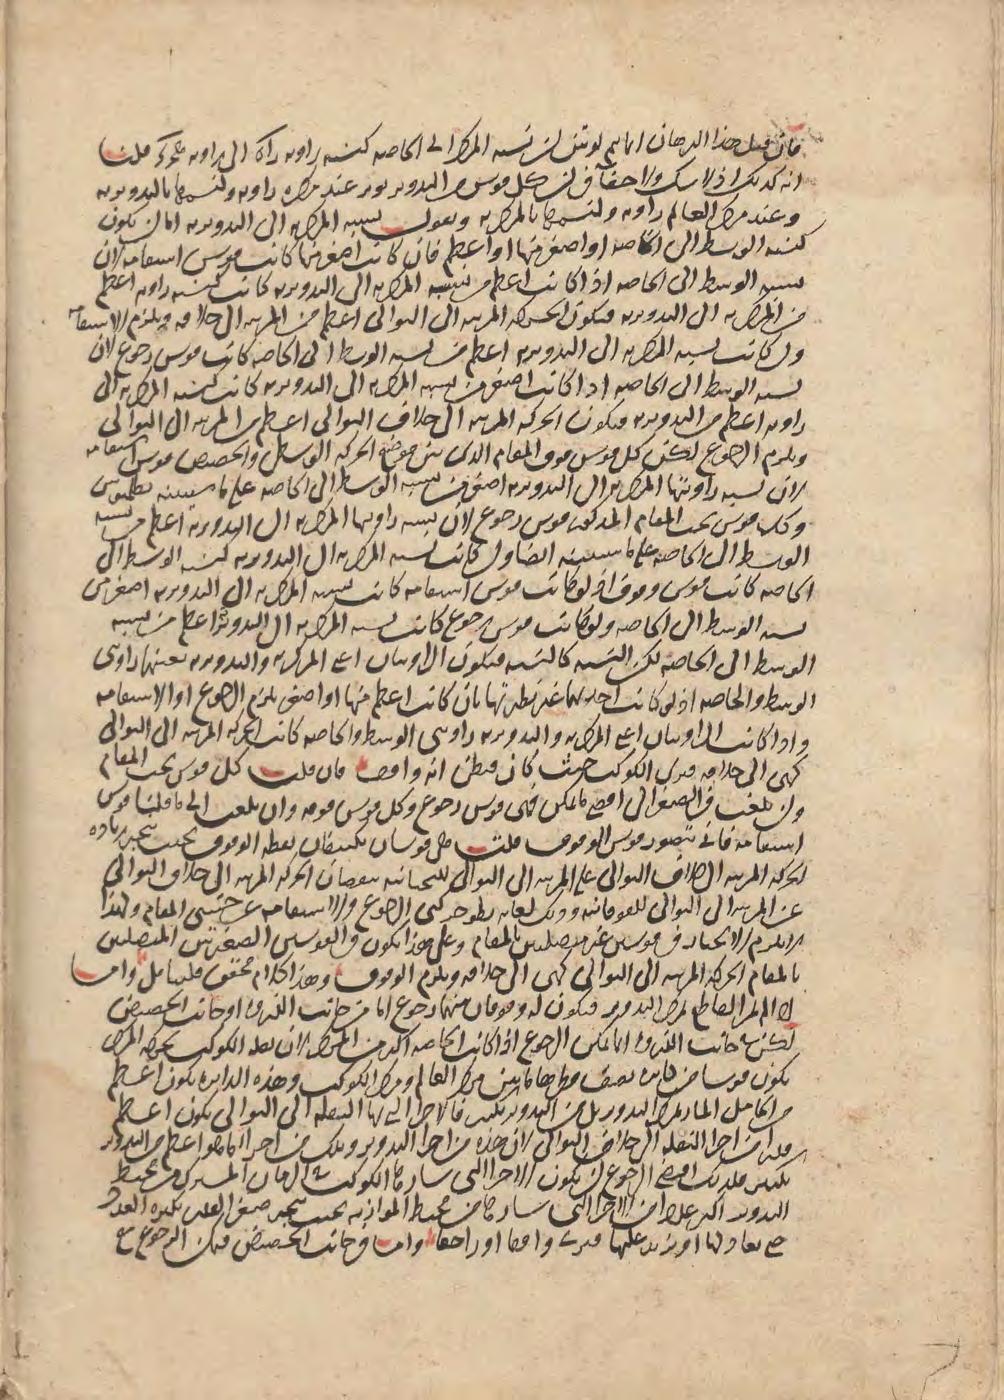 فان قيل هذا البرهان انما يتم لو تبين ان نسبة المركزية الى الخاصة كنسبة زاوية الى زاوية قلت
انه كذلك اذ لا شك ولا خفا في ان كل قوس من التدوير يوتر عند مركزه زاوية ولنسمها بالتدويرية
وعند مركز العالم زاوية ولنسمها بالمركزية ونقول نسبة المركزية الى التدويرية اما ان يكون
كنسبة الوسط الى الخاصة او اصغر منها او اعظم فان كانت اصغر منها كانت قوس استقامة لان
نسبة الوسط الى الخاصة اذا كانت اعظم من نسبة المركزية الى التدويرية كانت كنسبة زاوية اعظم
من المركزية الى التدويرية فيكون الحركة المرئية الى التوالي اعظم من المرئية الى خلافه ويلزم الاستقامة
وان كانت نسبة المركزية الى التدويرية اعظم من نسبة الوسط الى الخاصة كانت قوس رجوع لان
نسبة الوسط الى الخاصة اذا كانت اصغر من نسبة المركزية الى التدويرية كانت كنسبة المركزية الى
زاوية اعظم من التدويرية فيكون الحركة المرئية الى خلاف التوالي اعظم من المرئية الى التوالي
ويلزم الرجوع لكن كل قوس فوق المقام الذي بين موضع الحركة الوسطى والحضيض قوس استقامة
لان نسبة زاويتها المركزية الى التدويرية اصغر من نسبة الوسط الى الخاصة على ما سنبينه
وكل قوس تحت المقام المذكور قوس رجوع لان نسبة زاويتها المركزية الى التدويرية اعظم من نسبة
الوسط الى الخاصة على ما سنبينه ايضا وان كانت نسبة المركزية الى التدويرية كنسبة الوسط الى
الخاصة كانت قوس وقوف اذ لو كانت قوس استقامة كانت نسبة المركزية الى التدويرية اصغر من
نسبة الوسط الى الخاصة ولو كانت قوس رجوع كانت نسبة المركزية الى التدويرية اعظم من نسبة
الوسط الى الخاصة لكن النسبة كالنسبة فيكون الزاويتان اعني المركزية والتدويرية بعينهما زاويتي
الوسط والخاصة اذ لو كانت احديهما غير نظيرتها بان كانت اعظم منها او اصغر يلزم الرجوع او الاستقامة
واذا كانت الزاويتان اعني المركزية والتدويرية زاويتي الوسط والخاصة كانت الحركة المرئية الى التوالي
كهي الى خلافه فيرى الكوكب حيث كان فيظن انه واقف فان قلت كل قوس تحت المقام
وان بلغت في الصغر الى اقصى ما يمكن فهي قوس رجوع وكل قوس فوقه وان بلغت الى ما قلنا قوس
استقامة فانى يتصور قوس الوقوف قلت من قوسان تكتنفان نقطة الوقوف بحيث ينجبر زيادة
الحركة المرئية الى خلاف التوالي على المرئية الى التوالي للتحتانية بنقصان الحركة المرئية الى خلاف التوالي
عن المرئية الى التوالي للفوقانية وذلك لغاية بطو حركتي الرجوع والاستقامة عن جنبتي المقام ولهذا
لا يلزم الانجبار في قوسين غير متصلتين بالمقام وعلى هذا يكون في القوسين الصغيرتين المتصلتين
بالمقام الحركة المرئية الى التوالي كهي الى خلافه ويلزم الوقوف وهذا كلام محقق فليتامل واما
يكون له وقوفان بينهما رجوع اما من جانب الذروة او جانب الحضيض
لكن من جانب الذروة انما يمكن الرجوع اذا كانت الخاصة اكثر من المركز لان بعد الكوكب بحركة المركز
يكون قوسا من دايرة نصف قطرها ما بين مركز العالم ومركز الكوكب وهذه الدايرة يكون اعظم
من الحامل المار بمركز التدوير بل من التدوير بكثير فالاجزا التي بها النقلة الى التوالي يكون اعظم
من اجزا النقلة الى خلاف التوالي لان هذه من اجزا التدوير وتلك من اجزا ما هو اعظم من التدوير
بكثير فلذلك اقتضى الرجوع ان يكون الاجزا التي سارها الكوكب في الزمان المشترك من محيط
التدوير اكثر عددا من الاجزا التي سارها من محيط الموازية بحيث ينجبر صغر القلة بكثرة العدد
حتى يعادلها او يزيد عليها فيرى واقفا او راجعا واما في جانب الحضيض فيمكن الرجوع مع